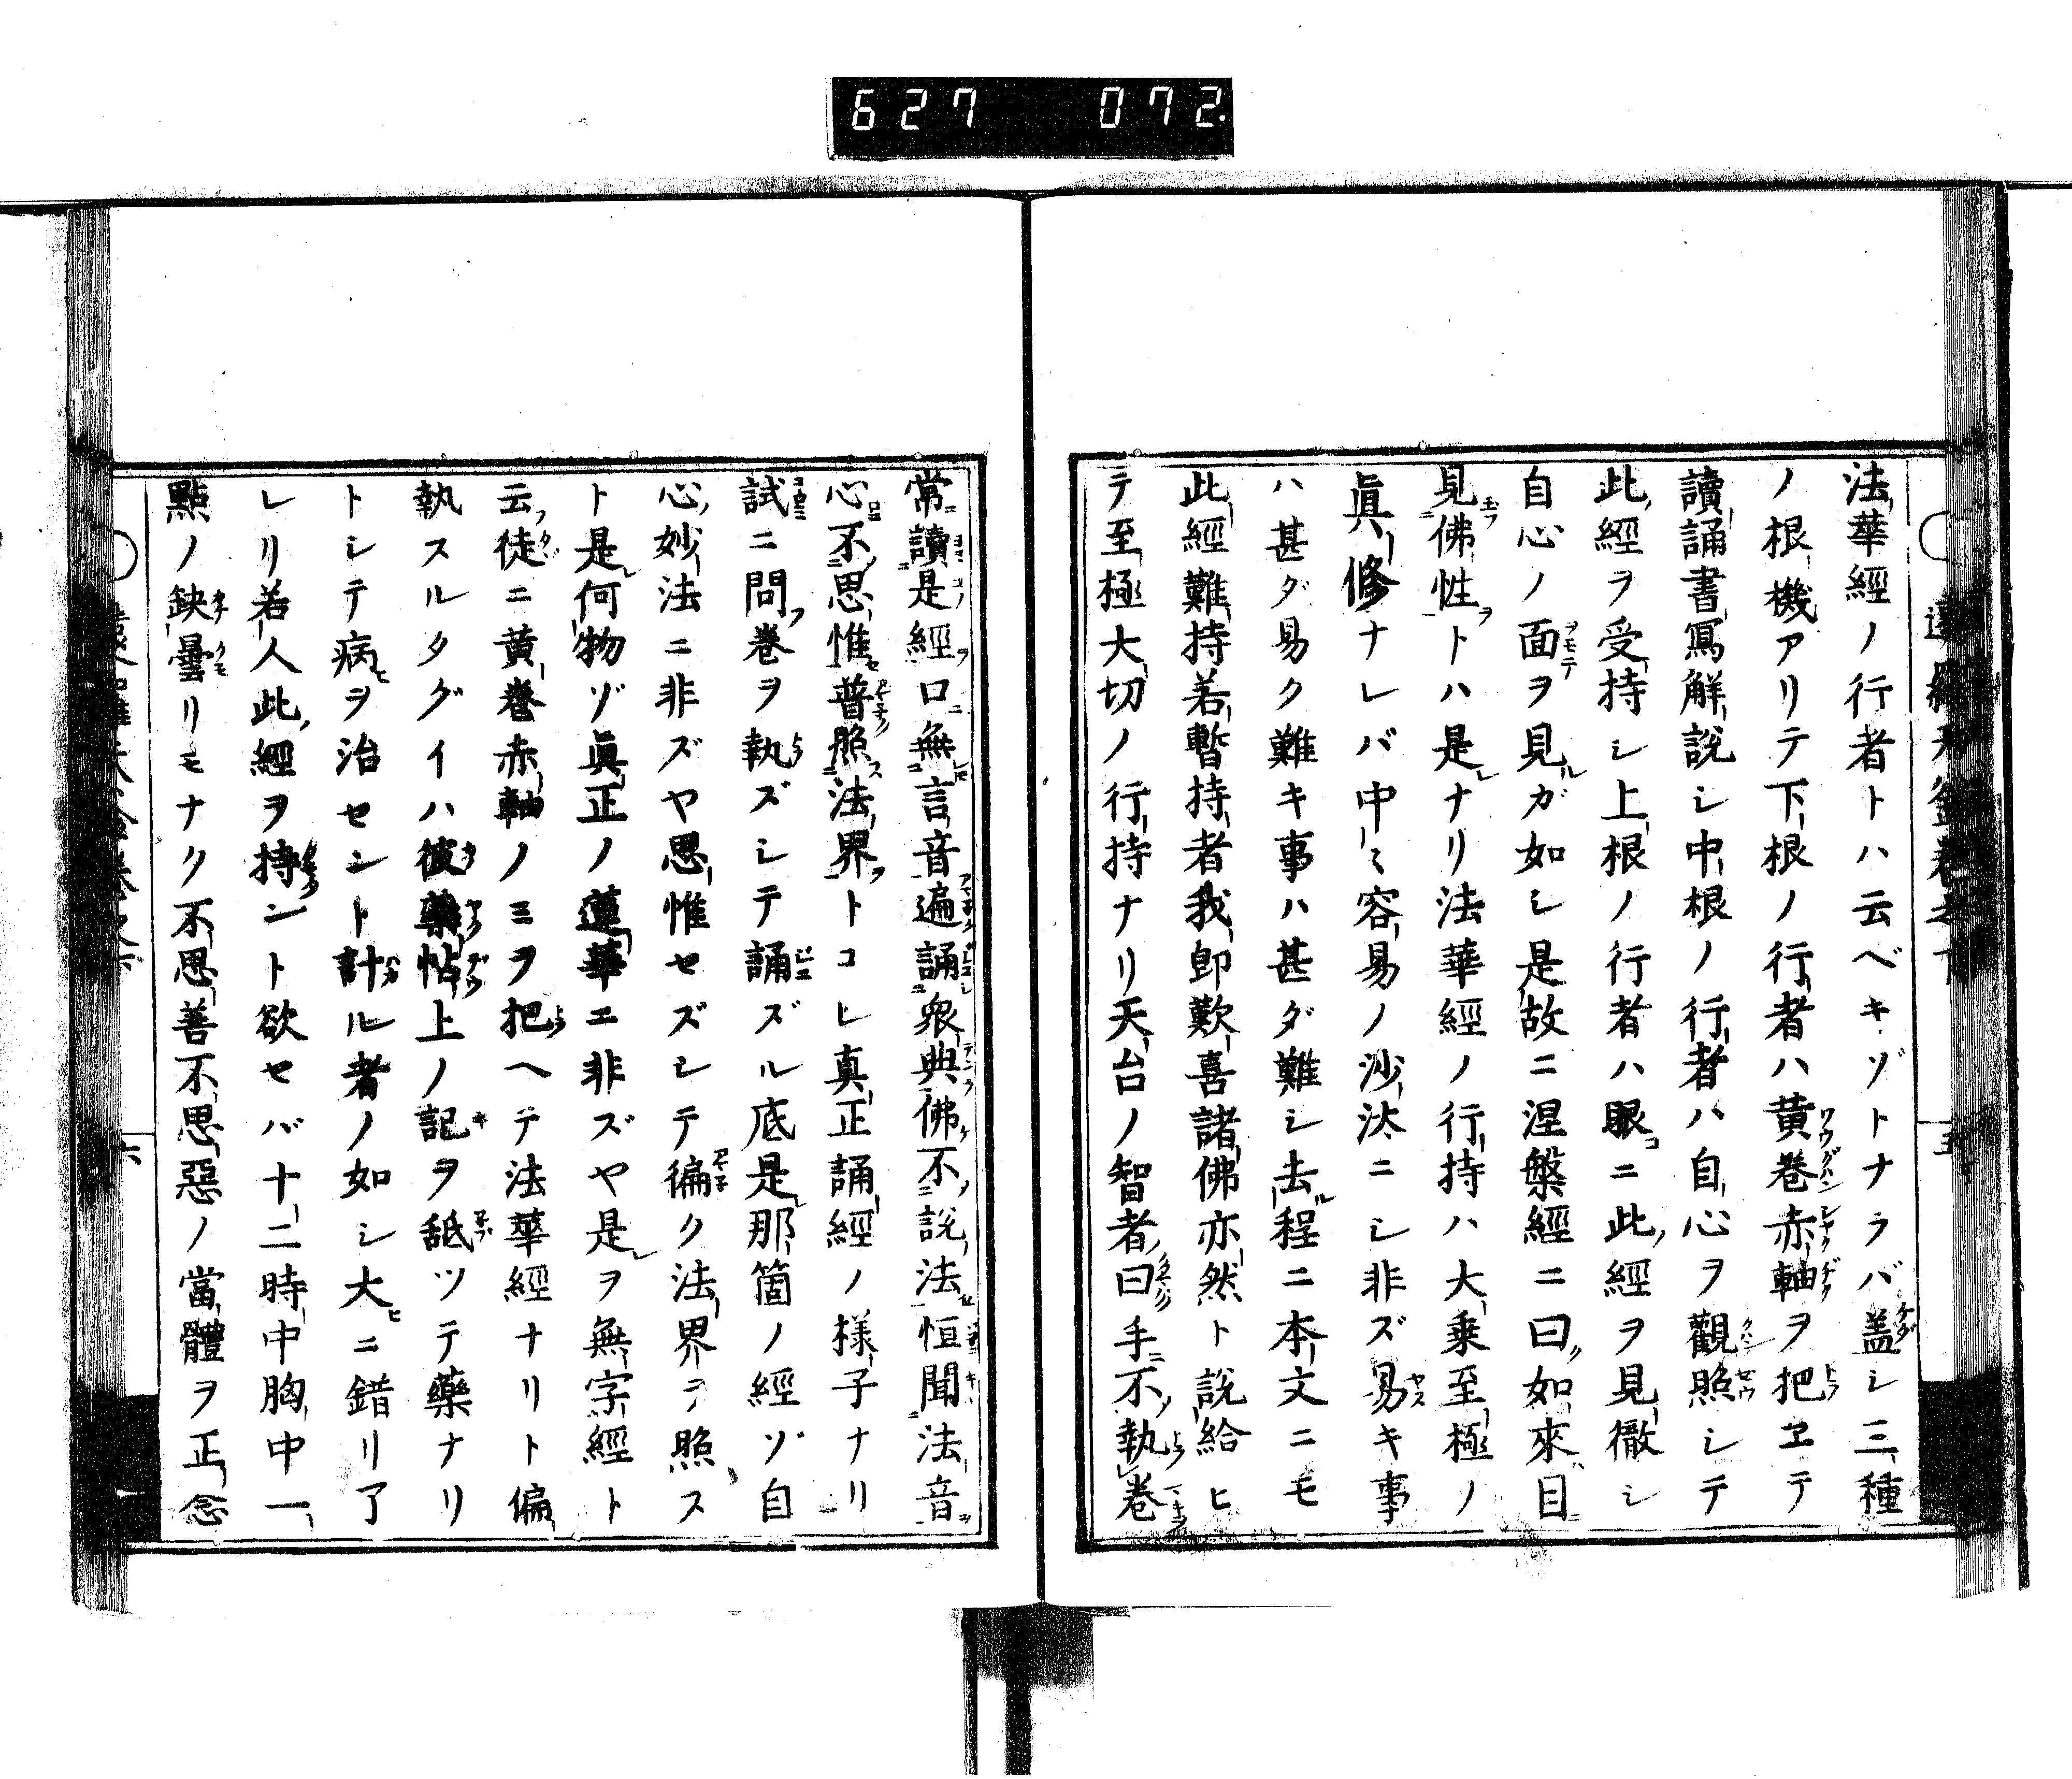 627 072.
法華經ノ行者トハ云ベキゾトナラバ盖シ三種
ノ根機アリテ下根ノ行者ハ黄卷赤軸ヲ把ヱテ
讀誦書寫解說シ中根ノ行者ハ自心ヲ觀照シテ
此經ヲ受持シ上根ノ行者ハ眼ニ此經ヲ見徹シ
自心ノ面ヲ見ルガ如シ是故ニ涅槃經ニ曰如來目
見佛性トハ是ナリ法華經ノ行持ハ大乗至極ノ
眞修ナレバ中〻容易ノ沙汰ニシ非ズ易キ事
ハ甚ダ易ク難キ事ハ甚ダ難シ去程ニ本文ニモ
此經難持若暫持者我卽歡喜諸佛亦然ト說給ヒ
テ至極大切ノ行持ナリ天台ノ智者曰手不執卷
常讀是經口無言音遍誦衆典佛不說法恒聞法音
心不思惟普照法界トコレ真正誦經ノ様子ナリ
試ニ問卷ヲ執ズシテ誦ズル底是那箇ノ經ゾ自
心妙法ニ非ズヤ思惟セズシテ徧ク法界ヲ照ス
ト是何物ゾ眞正ノ蓮華ニ非ズヤ是ヲ無字經ト
云徒ニ黄卷赤軸ノミヲ把ヘテ法華經ナリト偏
執スルタグイハ彼藥帖上ノ記ヲ舐ツテ藥ナリ
トシテ病ヲ治セント計ル者ノ如シ大ニ錯リ了
レリ若人此經ヲ持ント欲セバ十二時中胸中一
點ノ缺曇リモナク不思善不思惡ノ當體ヲ正念
六